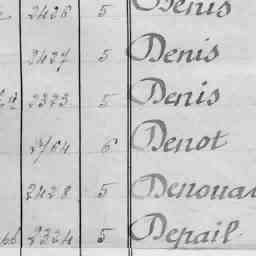 2426 5 Denis
2427 5 Denis
2373 5 Denis
2764 6 Denot
2428 5 Denouar
2324 5 Depail